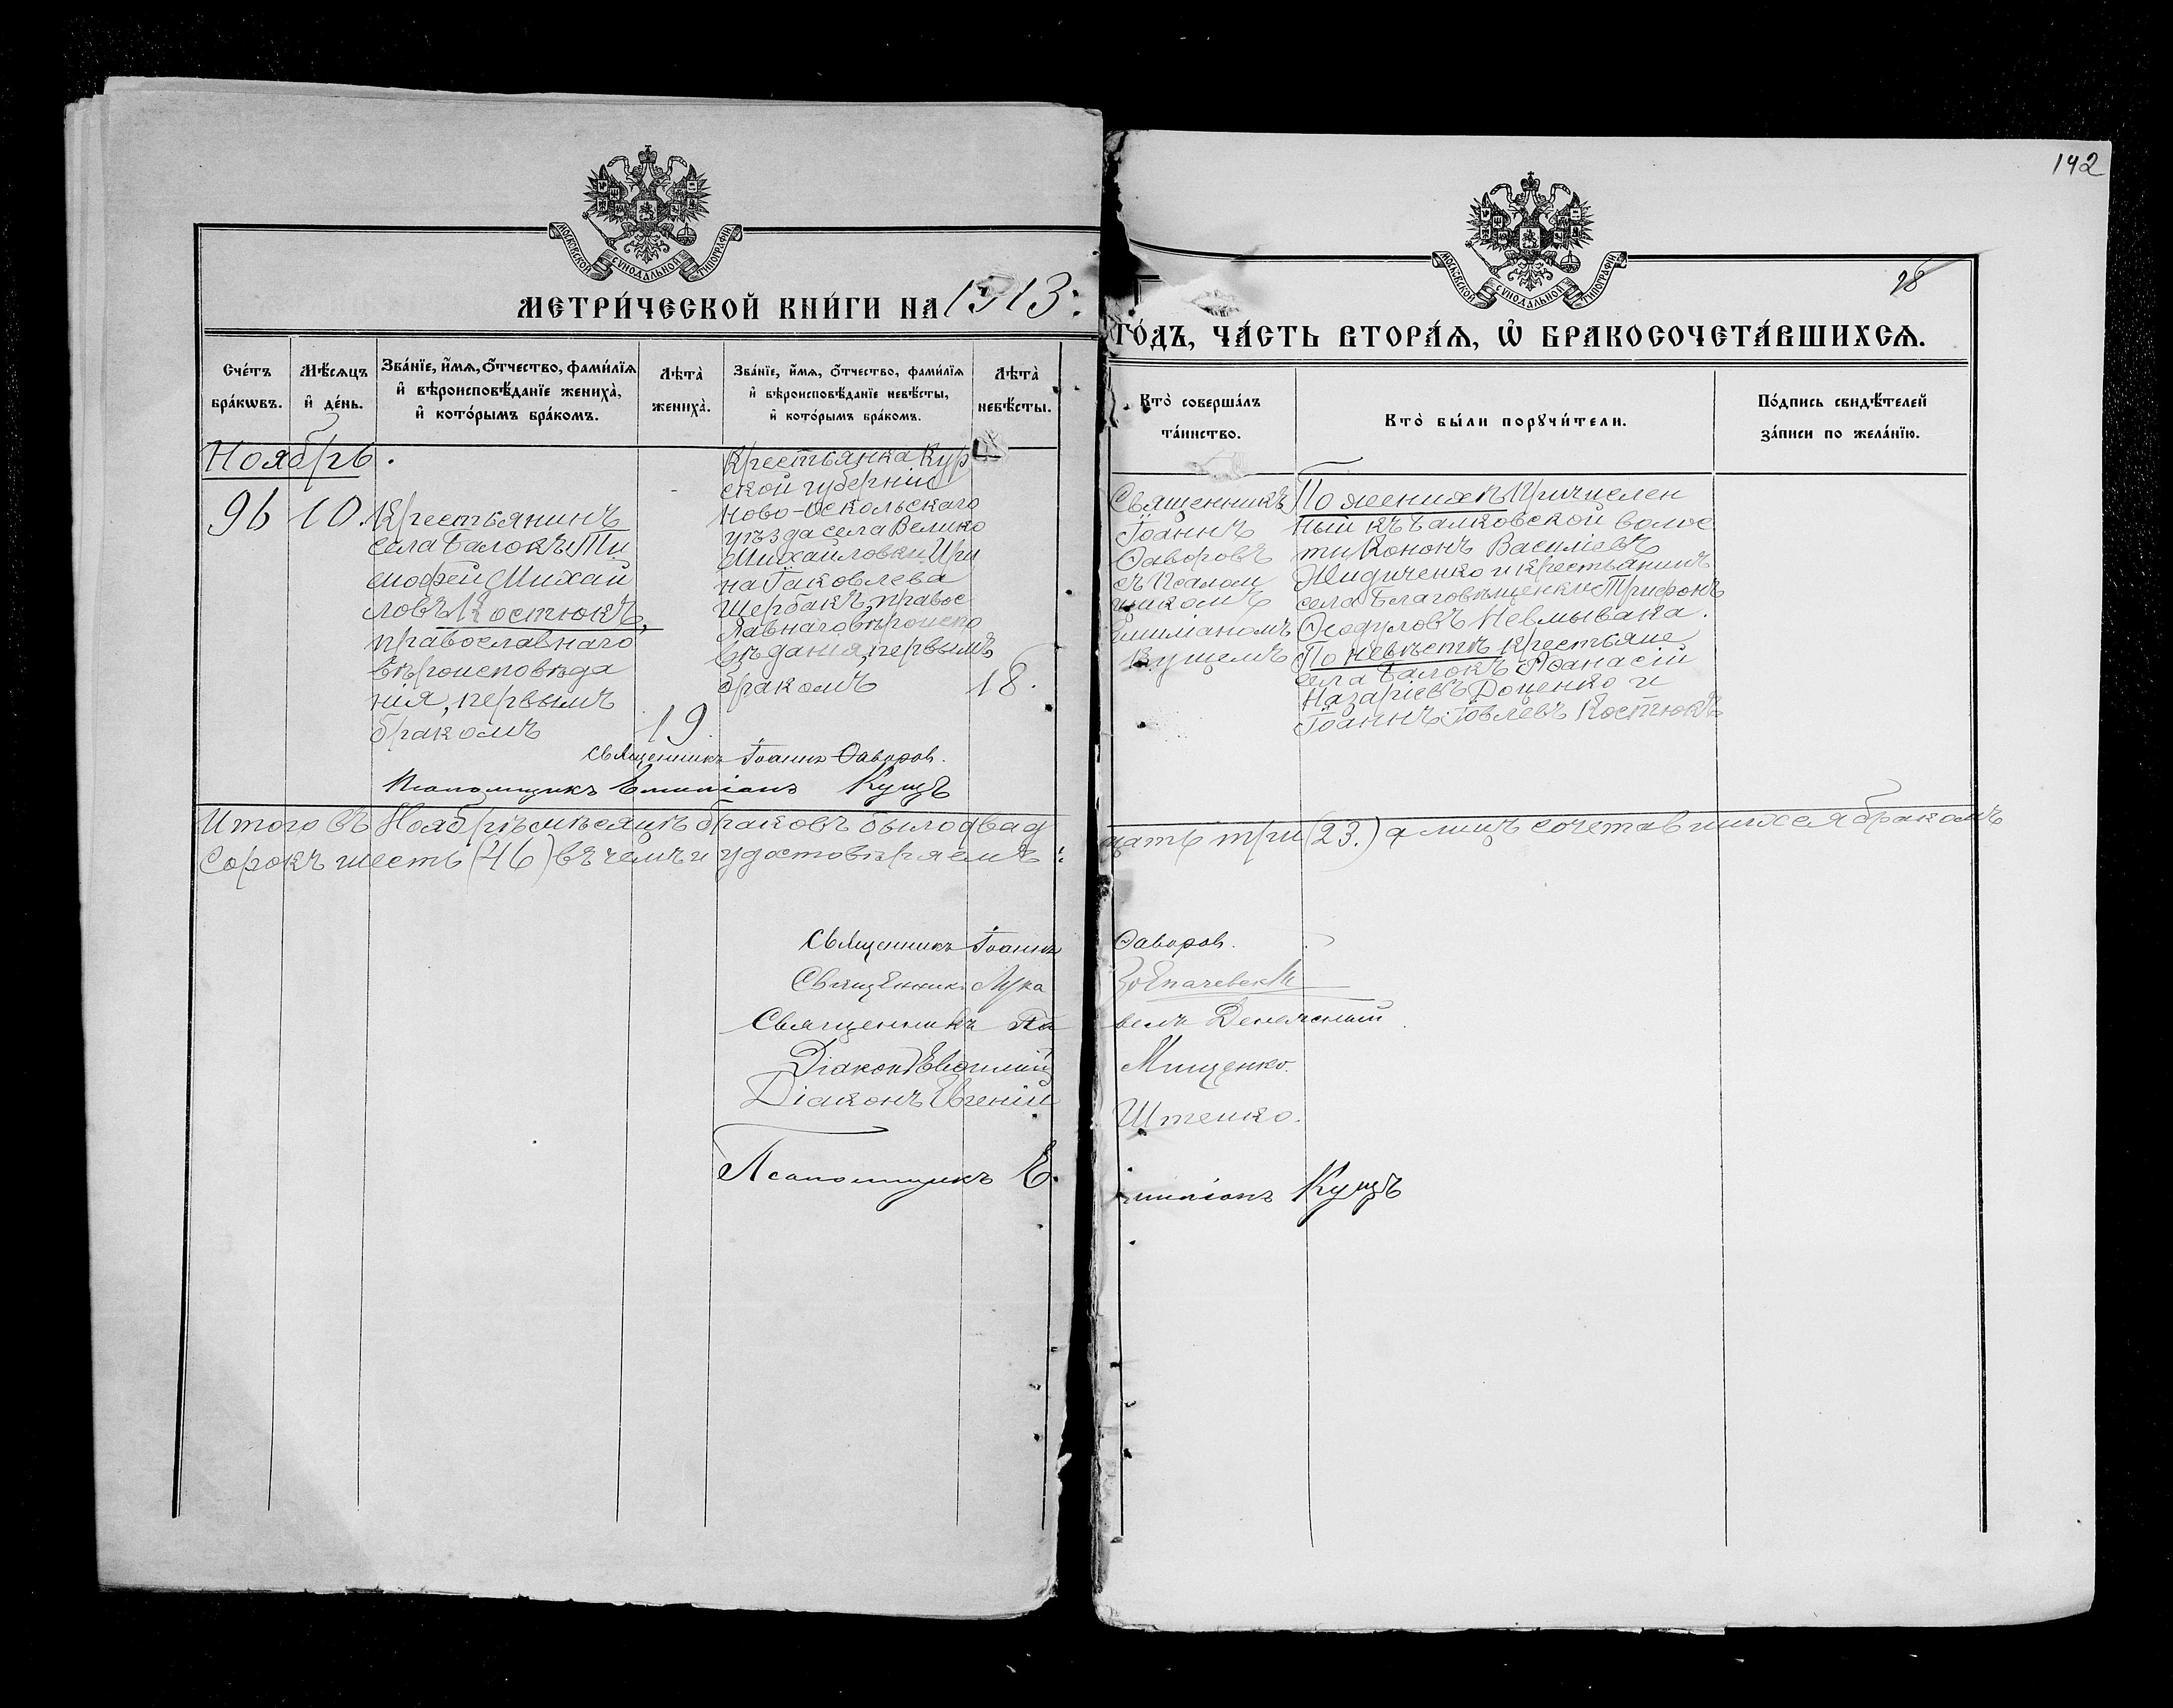 142
МОСКОВСКОЙ СѴНОДАЛЬНОЙ ТИПОГРАФІИ
МОСКОВСКОЙ СѴНОДАЛЬНОЙ ТИПОГРАФІИ
28
МЕТРИ́ЧЕСКОЙ КНИ́ГИ НА 1913:
ГО́ДЪ, ЧА́СТЬ ВТОРА́Ѧ, Ѡ҆ БРАКОСОЧЕТА́ВШИХСѦ.
Сче́тъ
бра́кѡвъ.
Мѣ́сѧцъ
и҆ де́нь.
Зва́нїе, и҆́мѧ, ѻ҆́тчество, фами́лїѧ
и҆ вѣроисповѣ́данїе жениха̀,
и҆ кото́рымъ бра́комъ.
Лѣта̀
жениха̀.
Зва́нїе, и҆́мѧ, ѻ҆́тчество, фами́лїѧ
и҆ вѣроисповѣ́данїе невѣ́сты,
и҆ кото́рымъ бра́комъ.
Лѣта̀
невѣ́сты.
Кто̀ соверша́лъ
та́инство.
Кто̀ бы́ли порꙋчи́тели.
По́дпись свидѣ́телей
за́писи по жела́нїю.
Ноябрь.
96
10.
Крестьянинъ
села Балокъ Ти
мофей Михай
ловъ Костюкъ,
православнаго
вѣроисповѣда
нія, первымъ
бракомъ
19.
Крестьянка Кур
ской губерніи
Ново-Оскольскаго
уѣзда села Велико
Михайловки Ири
на Іаковлева
Щербакъ, правос
лавнаго вѣроиспо
вѣданія, первымъ
бракомъ
18.
Священникъ
Іоаннъ
Ѳаворовъ
съ Псалом
щикомъ
Емиліаномъ
Кущемъ
По женихѣ: Причислен
ный къ Балковской волос
ти Кононъ Василіевъ
Жидиченко и крестьянинъ
села Благовѣщенки Трифонъ
Ѳеодуловъ Невмывака.
По невѣстѣ крестьяне
села Балокъ Аѳанасій
Назаріевъ Доценко и
Іоаннъ Іовлевъ Костюкъ
Священникъ Іоаннъ Ѳаворовъ.
Псаломщикъ Емиліанъ Кущъ
Итого въ Ноябрѣ мѣсяцѣ браковъ было двад
цать три (23.) а лицъ сочетавшихся бракомъ
сорокъ шесть (46) въ чемъ и удостовѣряемъ:
Священникъ Іоаннъ Ѳаворовъ.
Священникъ Лука
Священникъ Павелъ
Діаконъ Евѳимій Мищенко.
Діаконъ Евгеній Штенко.
Псаломщикъ Емиліанъ Кущъ